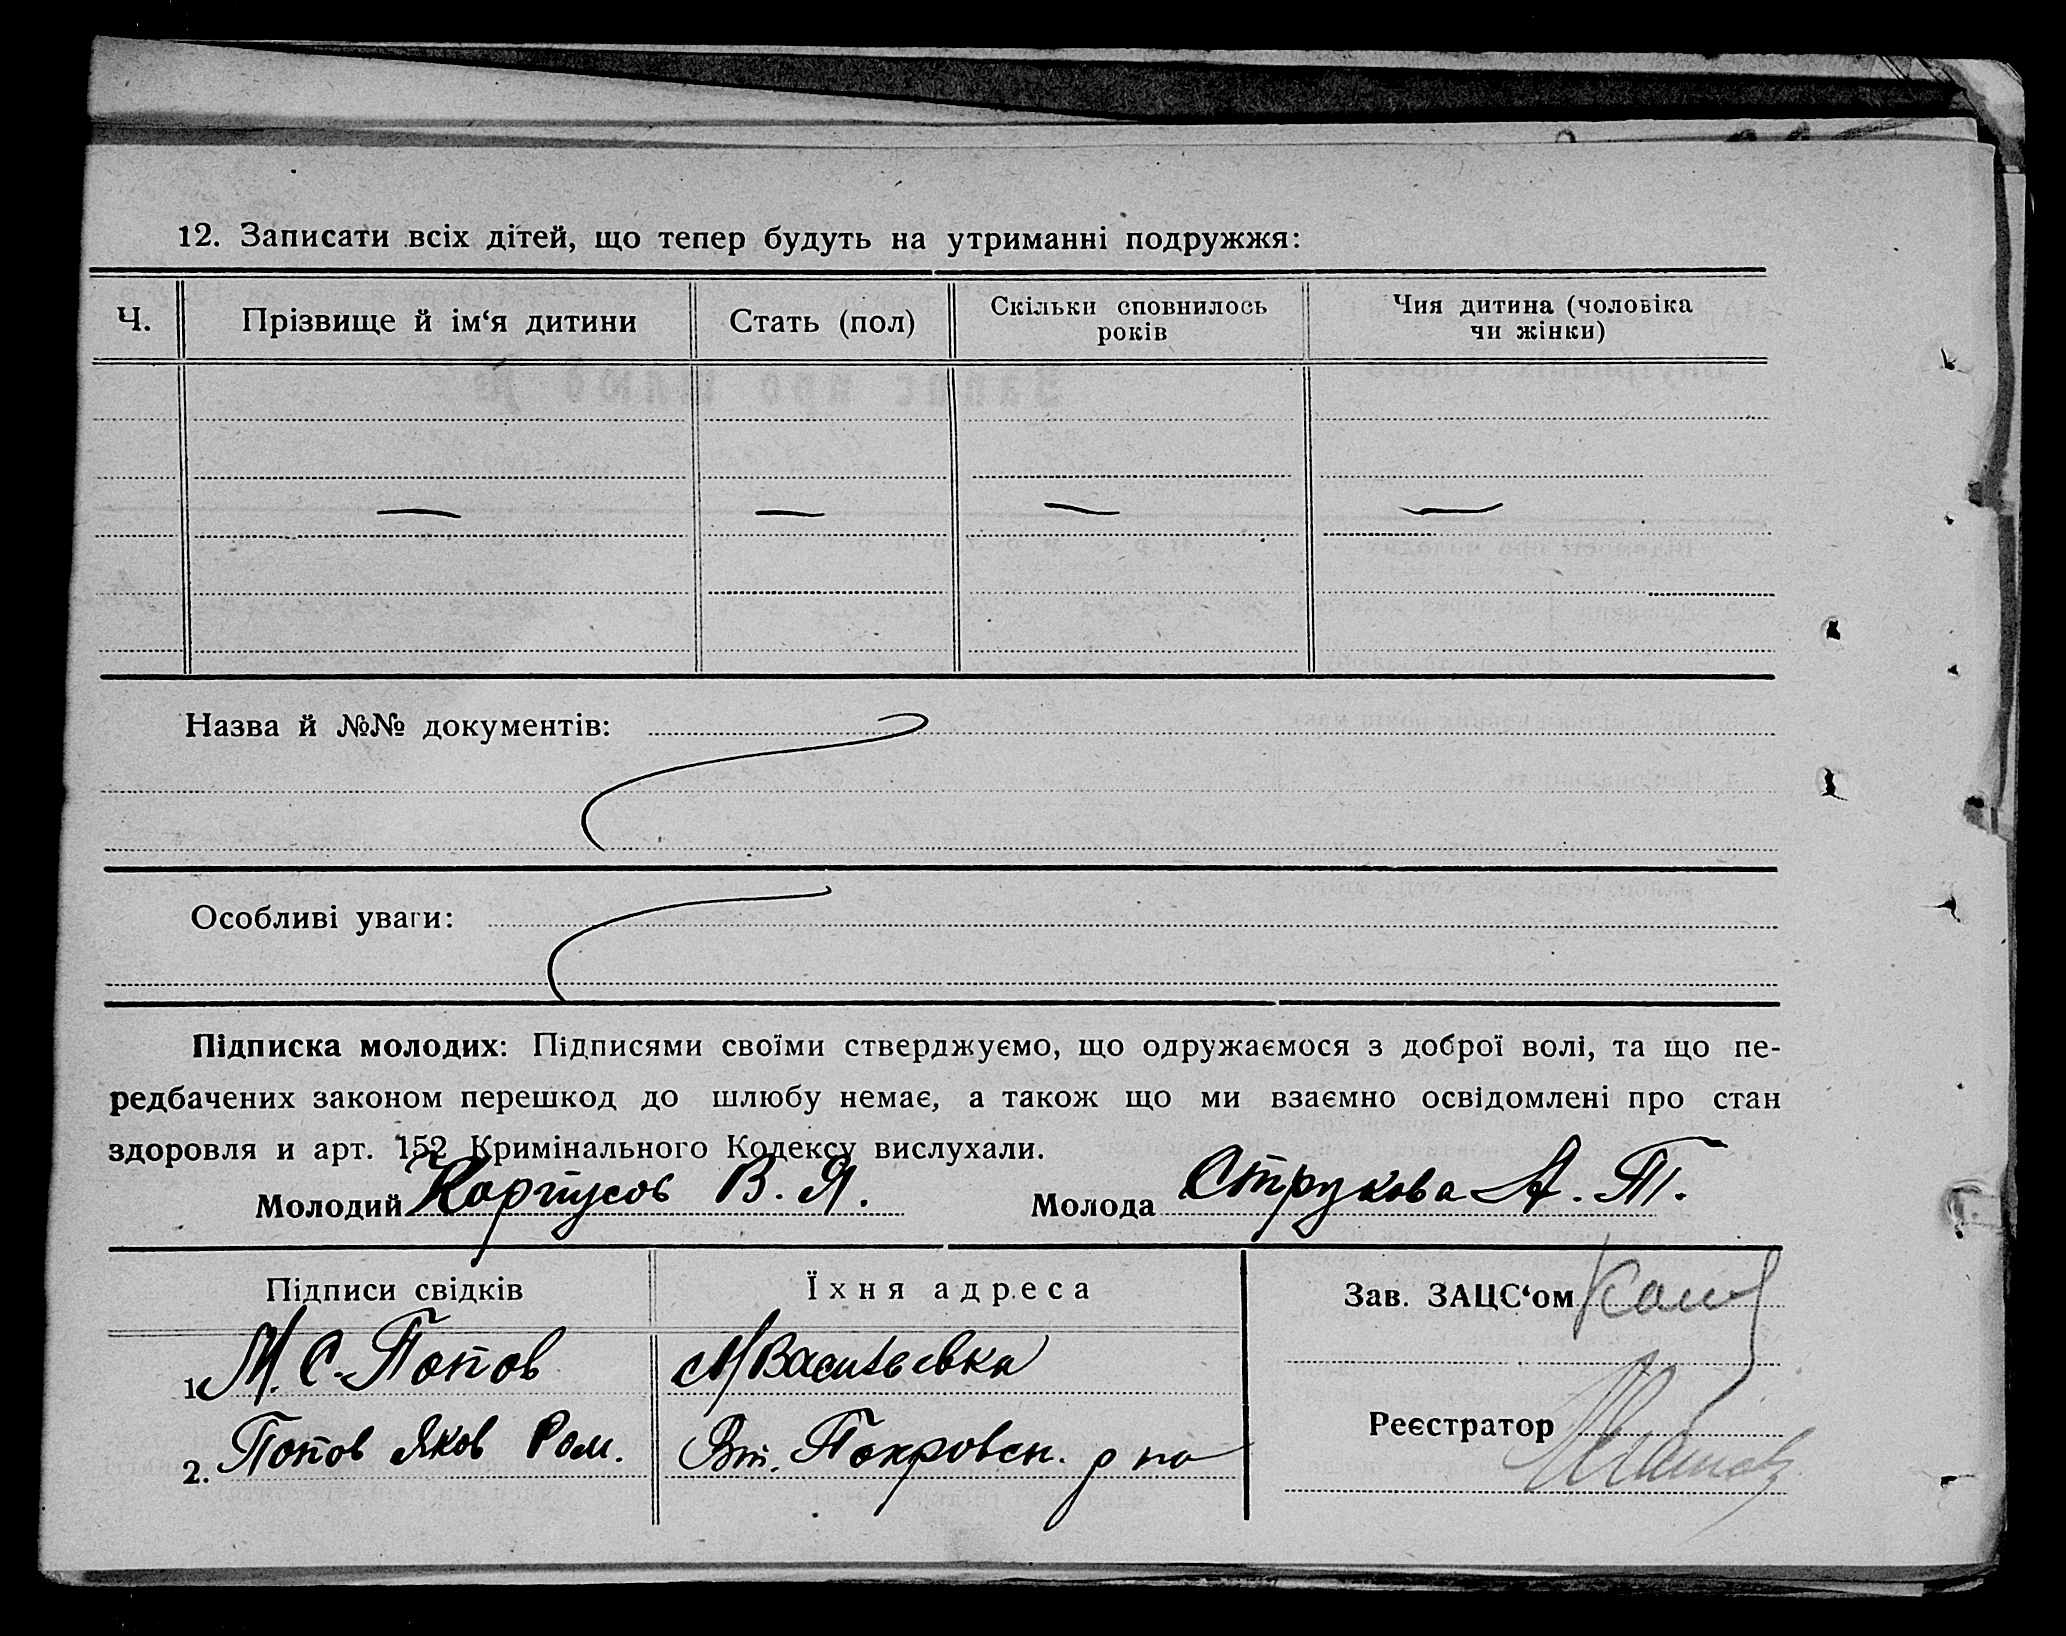 12. Записати всіх дітей, що тепер будуть на утриманні подружжя:
Ч. Прізвище й ім‘я дитини Стать (пол) Скільки сповнилось років Чия дитина (чоловіка чи жінки)
— — — —
Назва й №№ документів:
Особливі уваги:
Підписка молодих: Підписями своїми стверджуємо, що одружаємося з доброї волі, та що пе-
редбачених законом перешкод до шлюбу немає, а також що ми взаємно освідомлені про стан
здоровля и арт. 152 Кримінального Кодексу вислухали.
Молодий Корпусов В. Я. Молода Струкова А. Т.
Підписи свідків Їхня адреса Зав. ЗАЦС‘ом
1. М. С. Попов М Васильевка
Реєстратор
2. Попов Яков Ром. Вт. Покровск. р на